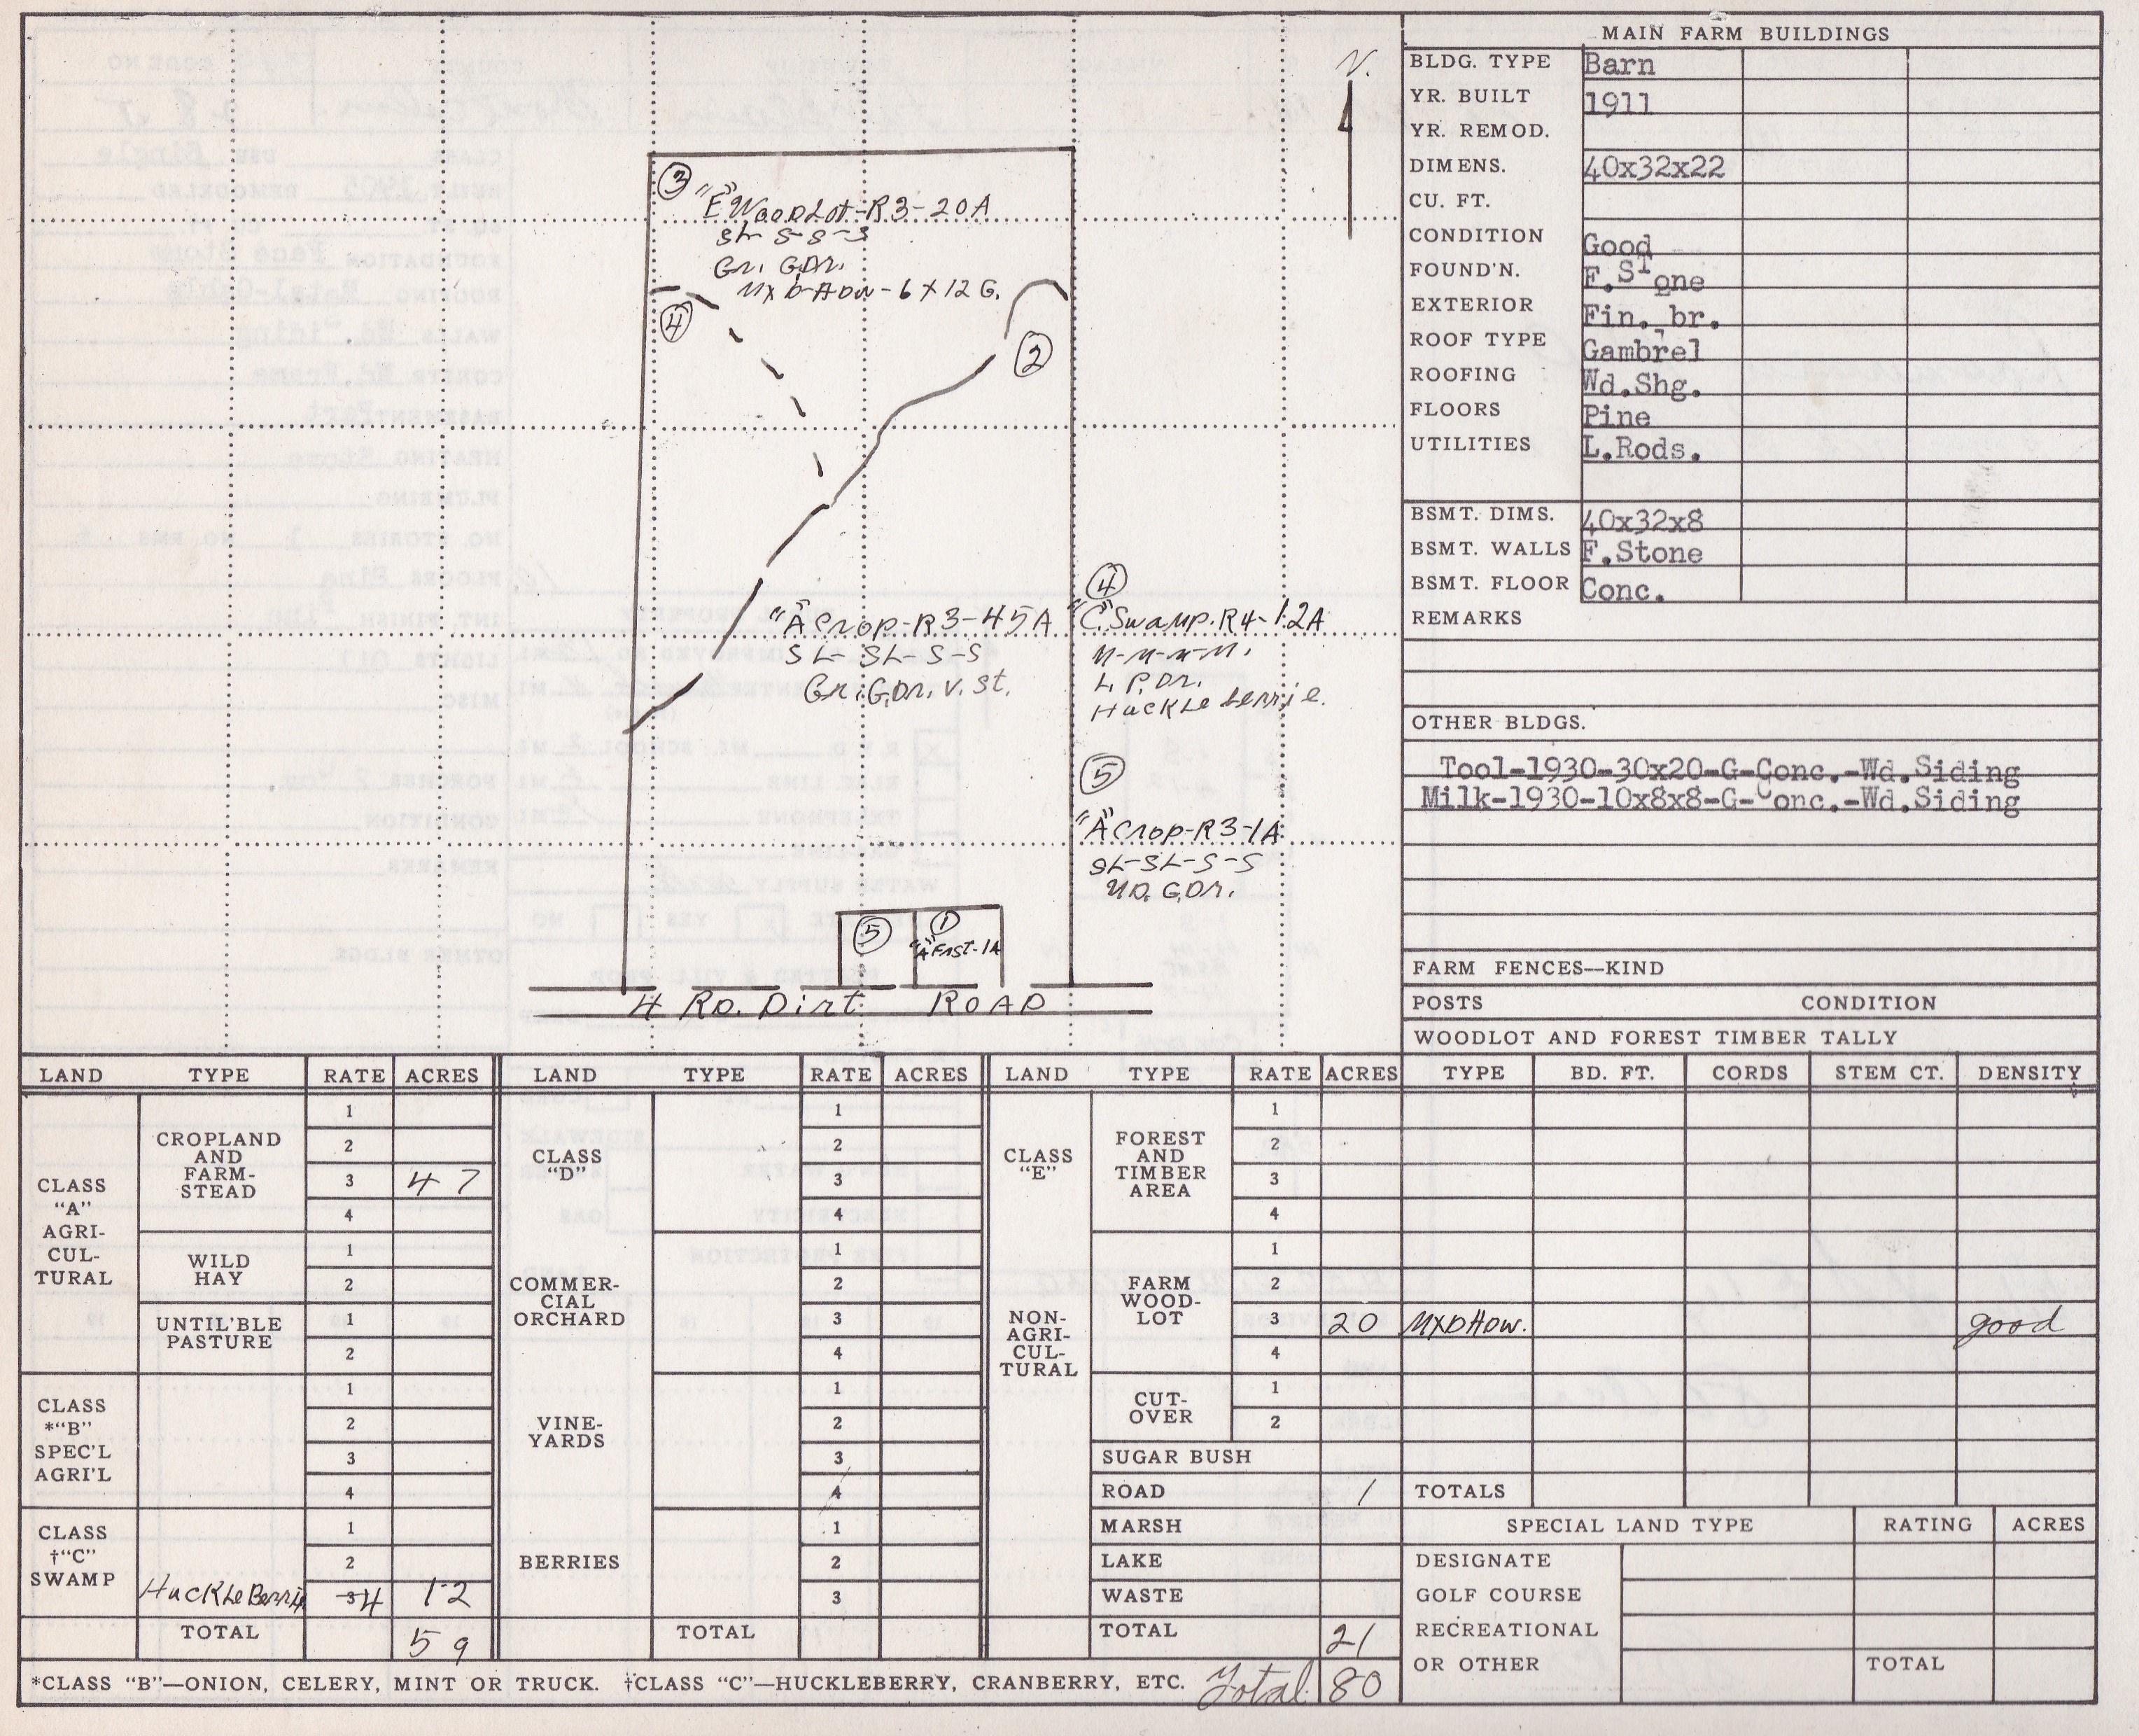 N.
③
"E" WoodLot-R3-20A
SL S-S-S
Gr. G.Dr.
④
②
④
"A" Crop-R3-45A
SL-SL-S-S
Gr. G.Dr. V. St.
"C" Swamp. R4-12A
M-M-M-M.
L. P. Dr.
Huckleberrie.
⑤
"A" Crop-R3-1A
SL-SL-S-S
UD. G.Dr.
⑤ ①
"A" Fnst-1A
4 Rd. Dirt ROAD
MAIN FARM BUILDINGS
BLDG. TYPE Barn
YR. BUILT 1911
YR. REMOD.
DIMENS. 40x32x22
CU. FT.
CONDITION Good
FOUND'N. F.Stone
EXTERIOR Fin. br.
ROOF TYPE Gambrel
ROOFING Wd.Shg.
FLOORS Pine
UTILITIES L.Rods.
BSMT. DIMS. 40x32x8
BSMT. WALLS F.Stone
BSMT. FLOOR Conc.
REMARKS
OTHER BLDGS.
Tool-1930-30x20-G-Conc.-Wd.Siding
Milk-1930-10x8x8-G-Conc.-Wd.Siding
FARM FENCES—KIND
POSTS CONDITION
WOODLOT AND FOREST TIMBER TALLY
TYPE BD. FT. CORDS STEM CT. DENSITY
MXD HDW. good
TOTALS
SPECIAL LAND TYPE RATING ACRES
DESIGNATE
GOLF COURSE
RECREATIONAL
OR OTHER TOTAL
LAND TYPE RATE ACRES
CLASS
"A"
AGRI-
CUL-
TURAL
CROPLAND
AND
FARM-
STEAD
1
2
3 47
4
WILD
HAY
1
2
UNTIL'BLE
PASTURE
1
2
CLASS
*"B"
SPEC'L
AGRI'L
1
2
3
4
CLASS
†"C"
SWAMP
1
2
HuckLeBerrie 3 4 12
TOTAL 59
LAND TYPE RATE ACRES
CLASS
"D"
COMMER-
CIAL
ORCHARD
1
2
3
4
1
2
3
4
VINE-
YARDS
1
2
3
4
BERRIES
1
2
3
TOTAL
LAND TYPE RATE ACRES
CLASS
"E"
NON-
AGRI-
CUL-
TURAL
FOREST
AND
TIMBER
AREA
1
2
3
4
FARM
WOOD-
LOT
1
2
3 20
4
CUT-
OVER
1
2
SUGAR BUSH
ROAD 1
MARSH
LAKE
WASTE
TOTAL 21
*CLASS "B"—ONION, CELERY, MINT OR TRUCK. †CLASS "C"—HUCKLEBERRY, CRANBERRY, ETC. Total 80